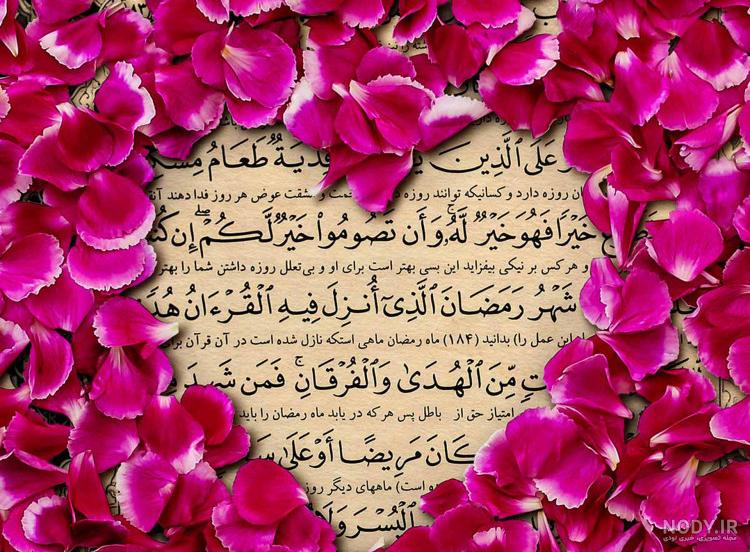 عَلَى ٱلَّذِينَ فِدْيَةٌ طَعَامُ
روزه دارد و کسانیکه توانند روزه و مشقت عوض هر روز فدا دهند
خَيْرًا فَهُوَ خَيْرٌ لَّهُۥ وَأَن تَصُومُوا۟ خَيْرٌ لَّكُمْ ۖ إِن
و هر کس بر نیکی بیفزاید این بسی بهتر است برای او و بی‌تعلل روزه داشتن شما را بهتر
شَهْرُ رَمَضَانَ ٱلَّذِىٓ أُنزِلَ فِيهِ ٱلْقُرْءَانُ
این عمل را) بدانید (۱۸۴) ماه رمضان ماهی استکه نازل شده است در آن قرآن
مِّنَ ٱلْهُدَىٰ وَٱلْفُرْقَانِ ۚ فَمَن شَهِدَ
امتیاز حق از باطل پس هر که در یابد ماه رمضان را باید
كَانَ مَرِيضًا أَوْ عَلَىٰ
است) ماههای دیگر
ٱلْيُسْرَ
NODY.IR
مجله تصویری، خبری نودی